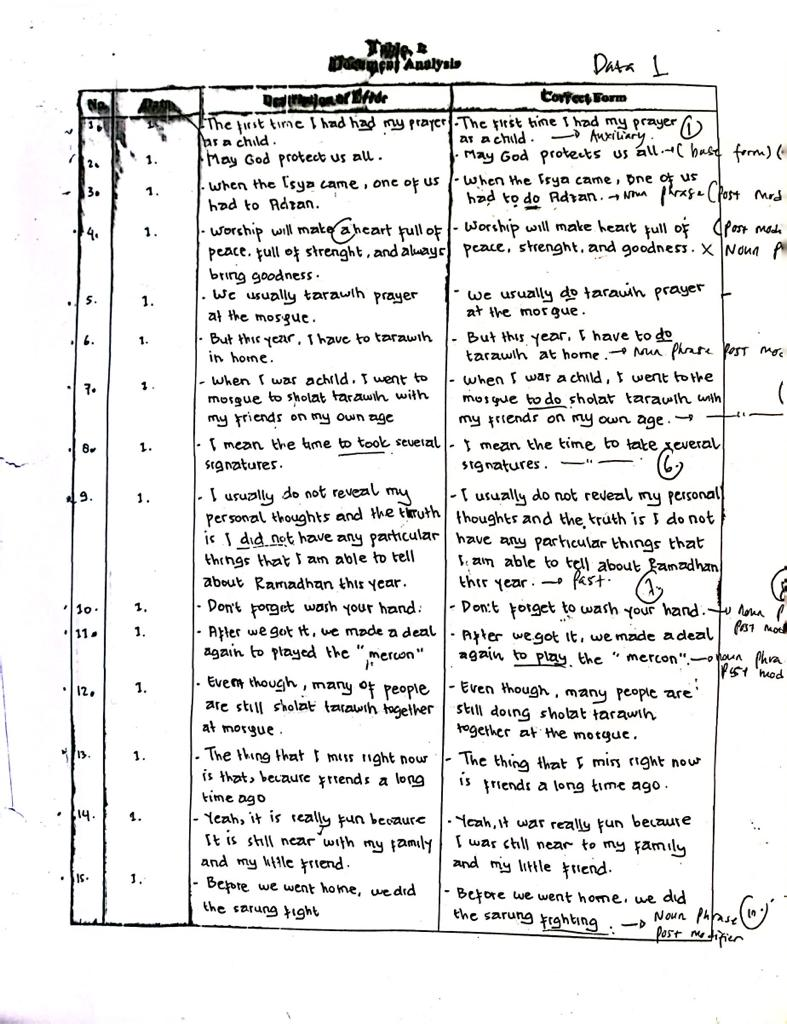 Table. 1
Document Analysis
Data 1
No. Data Correct Form
1. 1. - The first time I had had my prayer as a child.
- The first time I had my prayer (1)
as a child. → Auxiliary.
2. 1. - May God protect us all.
- May God protects us all. → (base form) (
3. 1. - When the Isya came, one of us
had to Adzan.
- When the Isya came, one of us
had to do Adzan. → Noun phrase (Post mod
4. 1. - Worship will make a heart full of
peace, full of strenght, and always
bring goodness.
- Worship will make heart full of (Post mod
peace, strenght, and goodness. X Noun P
5. 1. - We usually tarawih prayer
at the mosque.
- We usually do tarawih prayer
at the mosque.
6. 1. - But this year, I have to tarawih
in home.
- But this year, I have to do
tarawih at home. → Noun Phrase Post mod
7. 1. - When I was a child, I went to
mosque to sholat tarawih with
my friends on my own age
- When I was a child, I went to the
mosque to do sholat tarawih with
my friends on my own age. → —— " ——
8. 1. - I mean the time to took several
signatures.
- I mean the time to take several
signatures. —— " —— (6.)
9. 1. - I usually do not reveal my
personal thoughts and the thruth
is I did not have any particular
things that I am able to tell
about Ramadhan this year.
- I usually do not reveal my personal
thoughts and the truth is I do not
have any particular things that
I am able to tell about Ramadhan
this year. → Past.
10. 1. - Don't forget wash your hand.
- Don't forget to wash your hand. → Noun P
Post mod
11. 1. - After we got it, we made a deal
again to played the "mercon"
- After we got it, we made a deal
again to play the "mercon". → noun phra
Post mod
12. 1. - Even though, many of people
are still sholat tarawih together
at mosque.
- Even though, many people are
still doing sholat tarawih
together at the mosque.
13. 1. - The thing that I miss right now
is that, because friends a long
time ago
- The thing that I miss right now
is friends a long time ago.
14. 1. - Yeah, it is really fun because
It is still near with my family
and my little friend.
- Yeah, it was really fun because
I was still near to my family
and my little friend.
15. 1. - Before we went home, we did
the sarung fight
- Before we went home, we did
the sarung fighting. → Noun Phrase
Post modifier